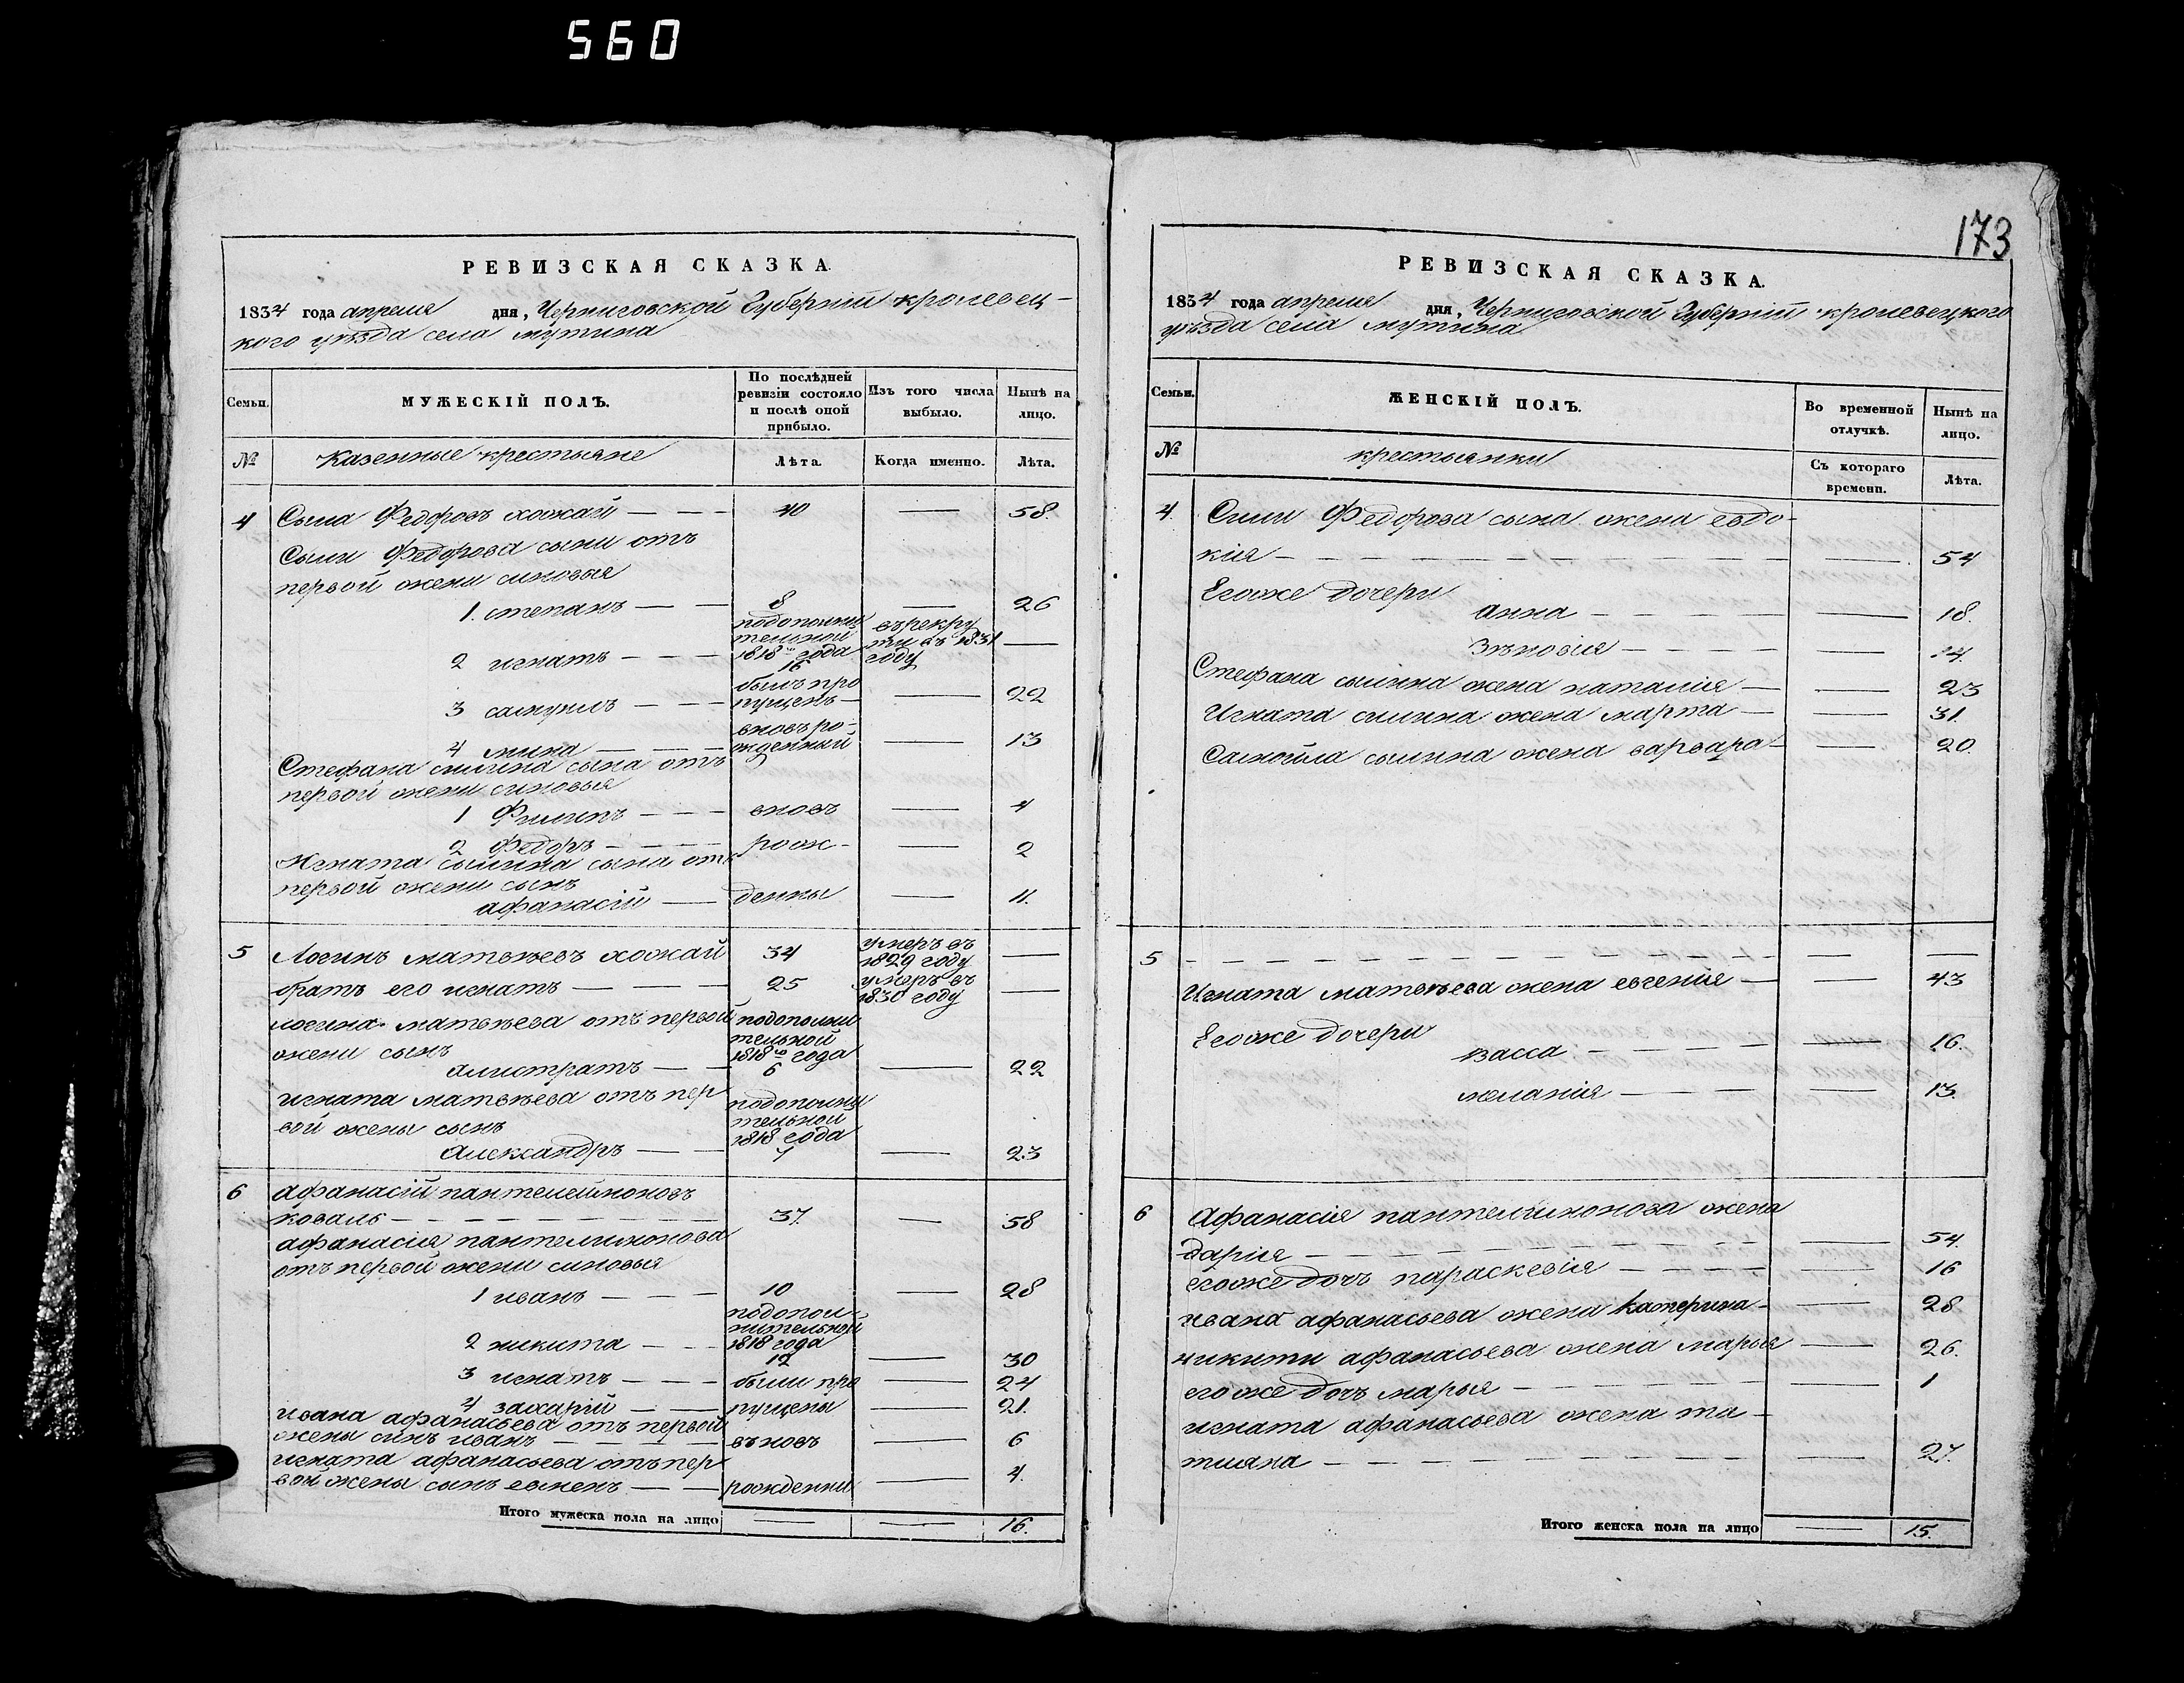 560
173
РЕВИЗСКАЯ СКАЗКА.
1834 года апреля дня, Черниговской Губернiи кролевец-
кого уезда села мутина
Семьи.
МУЖЕСКIЙ ПОЛЪ.
По послѣдней ревизiи состояло и послѣ оной прибыло.
Изъ того числа выбыло.
Нынѣ на лицо.
№
Казенные крестьяне
Лѣта.
Когда именно.
Лѣта.
4 Сыла Федоровъ хожай — — — 40 — 58.
Сыли Федорова сыни отъ
первой жени синовья
1. степанъ — — 8 — 26
2 игнатъ — — — подополни тельной 1818го года 16 въ рекру ти въ 1831 году —
3 самуилъ — — — былъ про пущенъ — — 22
4 мина — — — вновъ ро- жденный — 13
Стефана силина сына отъ
первой жени синовья
1 Филипъ — — — вновъ — 4
2 Федоръ — — — — рож- — 2
Игната сылина сына отъ
первой жени сынъ
афанасiй — денны — 11.
5 Логинъ матвѣевъ хожай 34 умеръ въ 1829 году —
братъ его игнатъ — — — 25 умеръ въ 1830 году —
логина матвѣева отъ первой
жени сынъ
алистратъ — — подополни тельной 1818го года 6 — 22
игната матвѣева отъ пер
вой жены сынъ
Александръ — — подополни тельной 1818 года 7 — 23
6 афанасiй пантелеймоновъ
коваль — — — — — — — 37. — 58
афанасия пантелимонова
отъ первой жени синовья
1 иванъ — — — 10 — 28
2 никита — — — подопол- нительной 1818 года 12 — 30
3 игнатъ — — — были про — 24
4 захарiй — — пущены — 21.
ивана афанасьева отъ первой
жены синъ иванъ — — — — въновъ — 6
игната афанасьева отъ пер
вой жены сынъ евменъ — — рожденни — 4.
Итого мужеска пола на лицо — — 16.
РЕВИЗСКАЯ СКАЗКА.
1834 года апреля дня, Черниговской Губернiи кролевецкого
уѣзда села мутина
Семьи.
ЖЕНСКIЙ ПОЛЪ.
Во временной отлучкѣ.
Нынѣ на лицо.
№
крестьянки
Съ котораго времени.
Лѣта.
4. Сили Федорова сына жена евдо-
кiя — — — — — — — — — — 54
Егоже дочери
анна — — — — — 18.
Зѣновiя — — — — — 14.
Стефана сылина жена наталiя — — 23
Игната силина жена марта — — 31.
Самойла сылина жена варвара — — 20.
5 — — — — — — — — — — — —
Игната матвѣева жена евгенiя — — 43
Егоже дочери
васса — — — — — 16.
меланiя — — — — 13.
6 Афанасiя пантелимонова жена
дарiя — — — — — — — — — — 54.
егоже дочъ параскевiя — — — — — 16
ивана афанасьева жена Катерина — — 28
никити афанасьева жена марья — 26.
егоже дочъ марья — — — — — — 1
игната афанасьева жена та-
тияна — — — — — — — — — 27.
Итого женска пола на лицо — 15.